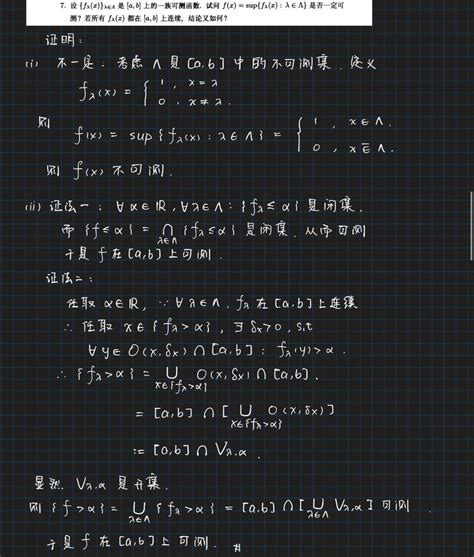 7. 设 {f_λ(x)}_{λ∈Λ} 是 [a,b] 上的一族可测函数. 试问 f(x) = sup{f_λ(x) : λ ∈ Λ} 是否一定可
测? 若所有 f_λ(x) 都在 [a,b] 上连续, 结论又如何?
证明:
(i) 不一定: 考虑 Λ 是 [a.b] 中的不可测集. 定义
f_λ(x) = { 1 , x = λ
0 , x ≠ λ.
则
f(x) = sup { f_λ(x) : λ ∈ Λ } = { 1 , x ∈ Λ.
0 , x ∈̄ Λ.
则 f(x) 不可测.
(ii) 证法一: ∀ α ∈ ℝ, ∀ λ ∈ Λ : { f_λ ≤ α } 是闭集.
而 { f ≤ α } = ⋂_{λ∈Λ} { f_λ ≤ α } 是闭集. 从而可测
于是 f 在 [a,b] 上可测.
证法二:
任取 α ∈ ℝ, ∵ ∀ λ ∈ Λ. f_λ 在 [a.b] 上连续
∴ 任取 x ∈ { f_λ > α }, ∃ δ_x > 0, s.t
∀ y ∈ O(x, δ_x) ∩ [a,b] : f_λ(y) > α .
∴ { f_λ > α } = ⋃_{x∈{f_λ>α}} O(x, δ_x) ∩ [a,b] .
= [a,b] ∩ [ ⋃_{x∈{f_λ>α}} O(x, δ_x) ]
:= [a,b] ∩ V_{λ.α}
显然 V_{λ.α} 是开集.
则 { f > α } = ⋃_{λ∈Λ} { f_λ > α } = [a,b] ∩ [ ⋃_{λ∈Λ} V_{λ.α} ] 可测 .
于是 f 在 [a,b] 上可测 . #